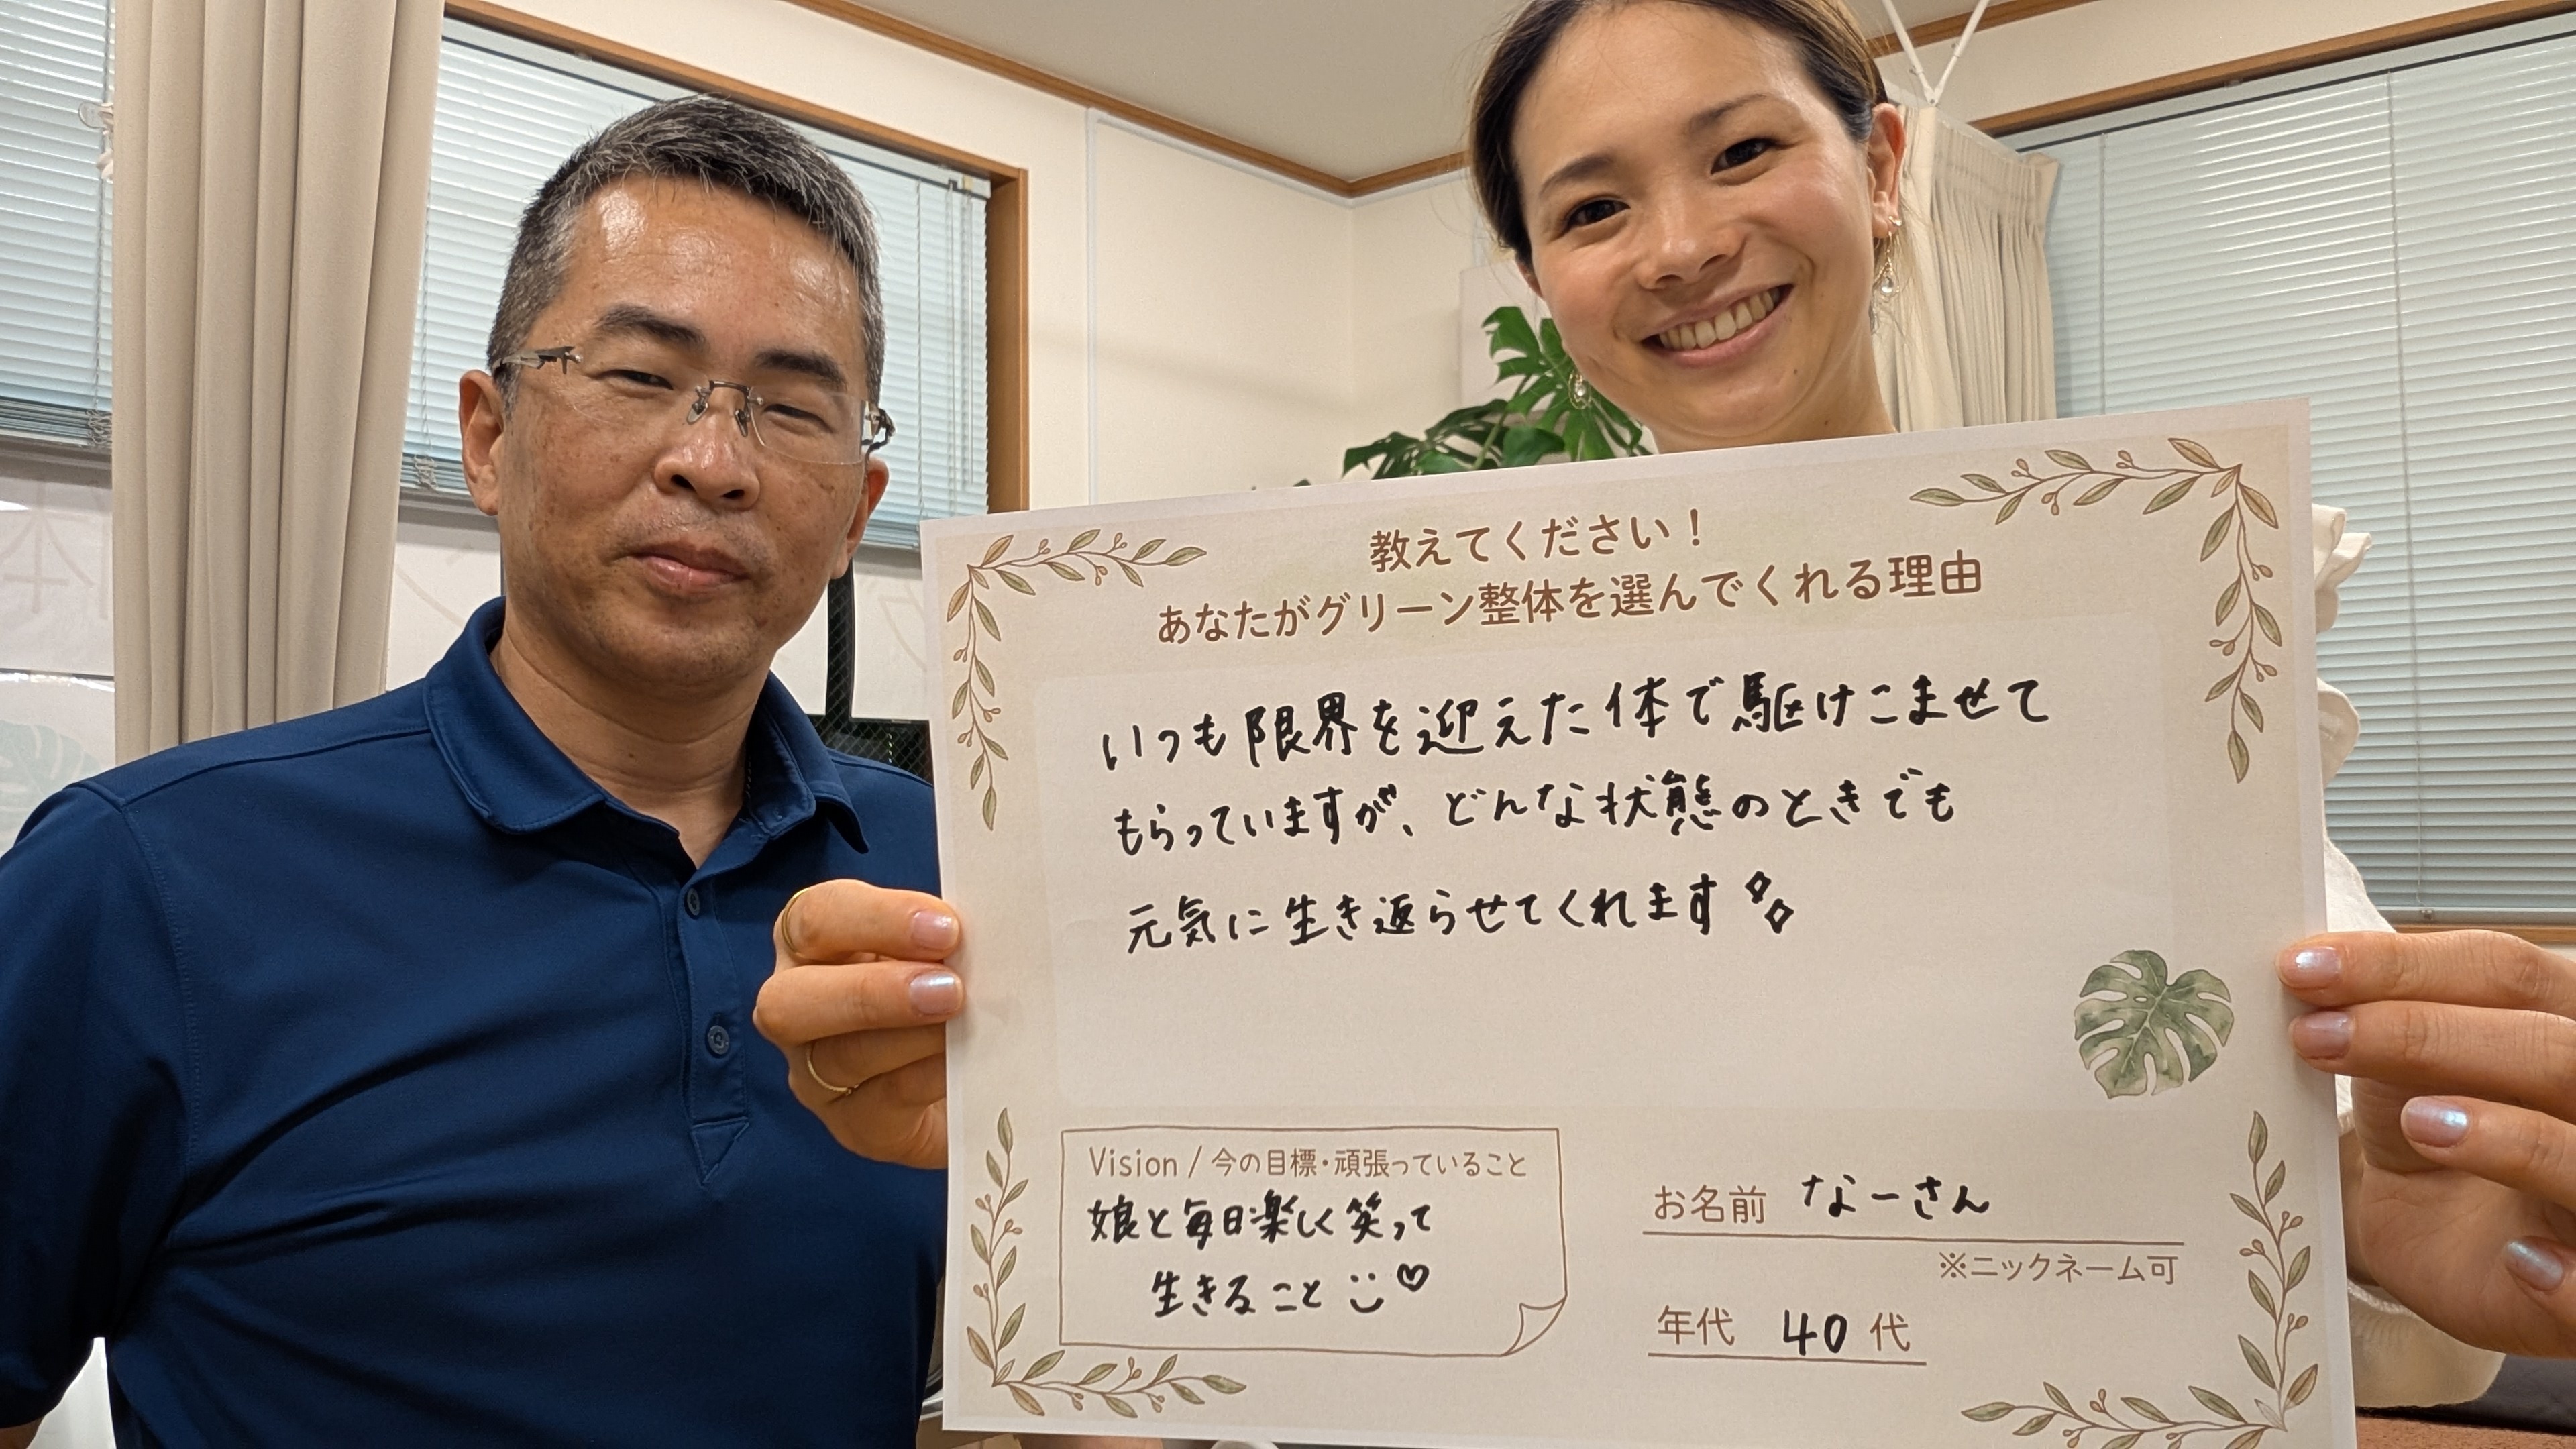 教えてください！
あなたがグリーン整体を選んでくれる理由
いつも限界を迎えた体で駆けこませて
もらっていますが、どんな状態のときでも
元気に生き返らせてくれます
Vision / 今の目標・頑張っていること
娘と毎日楽しく笑って
生きること
お名前 なーさん
※ニックネーム可
年代 40 代